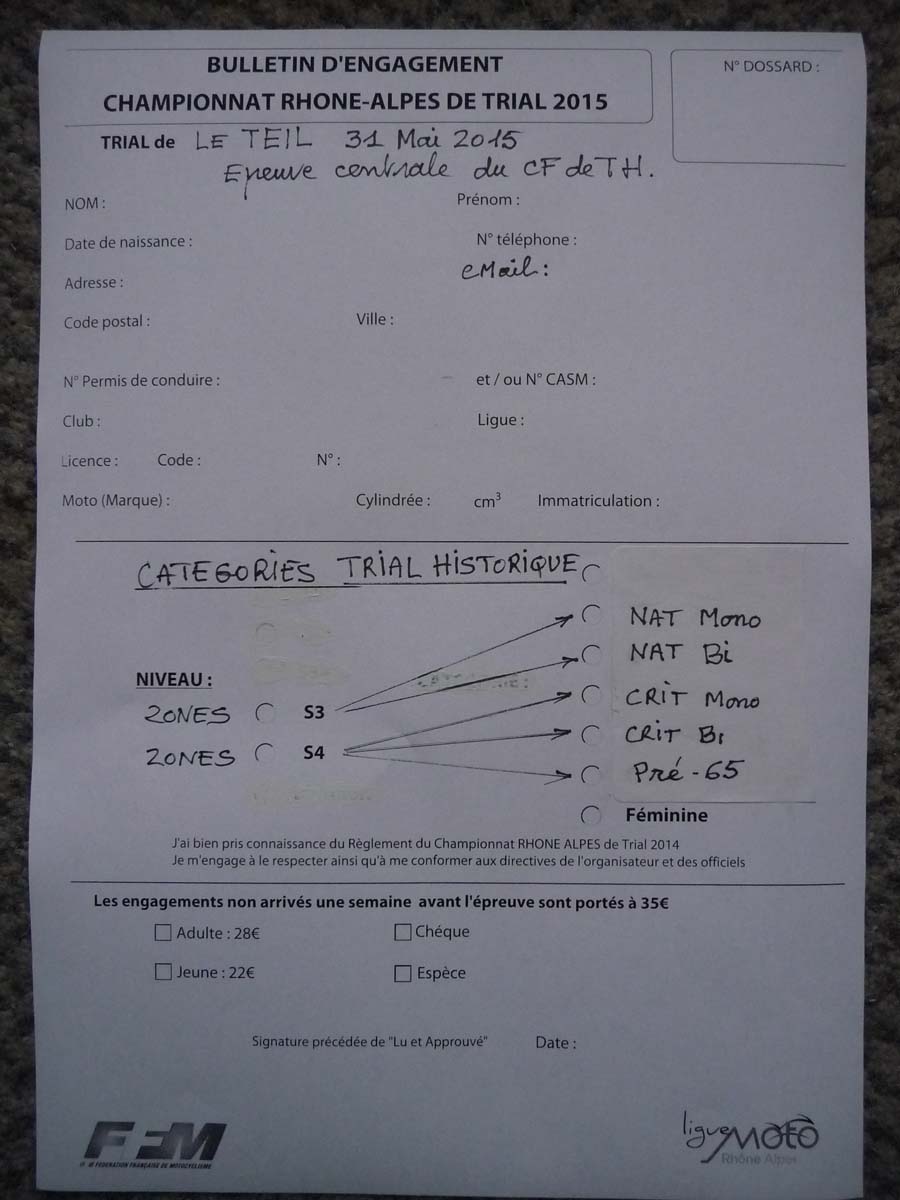 BULLETIN D'ENGAGEMENT
CHAMPIONNAT RHONE-ALPES DE TRIAL 2015
N° DOSSARD :
TRIAL de LE TEIL 31 Mai 2015
Epreuve centrale du CF de TH.
NOM : Prénom :
Date de naissance : N° téléphone :
eMail :
Adresse :
Code postal : Ville :
N° Permis de conduire : et / ou N° CASM :
Club : Ligue :
Licence : Code : N° :
Moto (Marque) : Cylindrée : cm³ Immatriculation :
CATEGORIES TRIAL HISTORIQUE
NAT Mono
NAT Bi
NIVEAU :
CRIT Mono
ZONES S3
CRIT Bi
ZONES S4
Pré-65
Féminine
J'ai bien pris connaissance du Règlement du Championnat RHONE ALPES de Trial 2014
Je m'engage à le respecter ainsi qu'à me conformer aux directives de l'organisateur et des officiels
Les engagements non arrivés une semaine avant l'épreuve sont portés à 35€
Adulte : 28€ Chéque
Jeune : 22€ Espèce
Signature précédée de "Lu et Approuvé" Date :
FFM
FEDERATION FRANÇAISE DE MOTOCYCLISME
ligue MOTO
Rhône Alpes